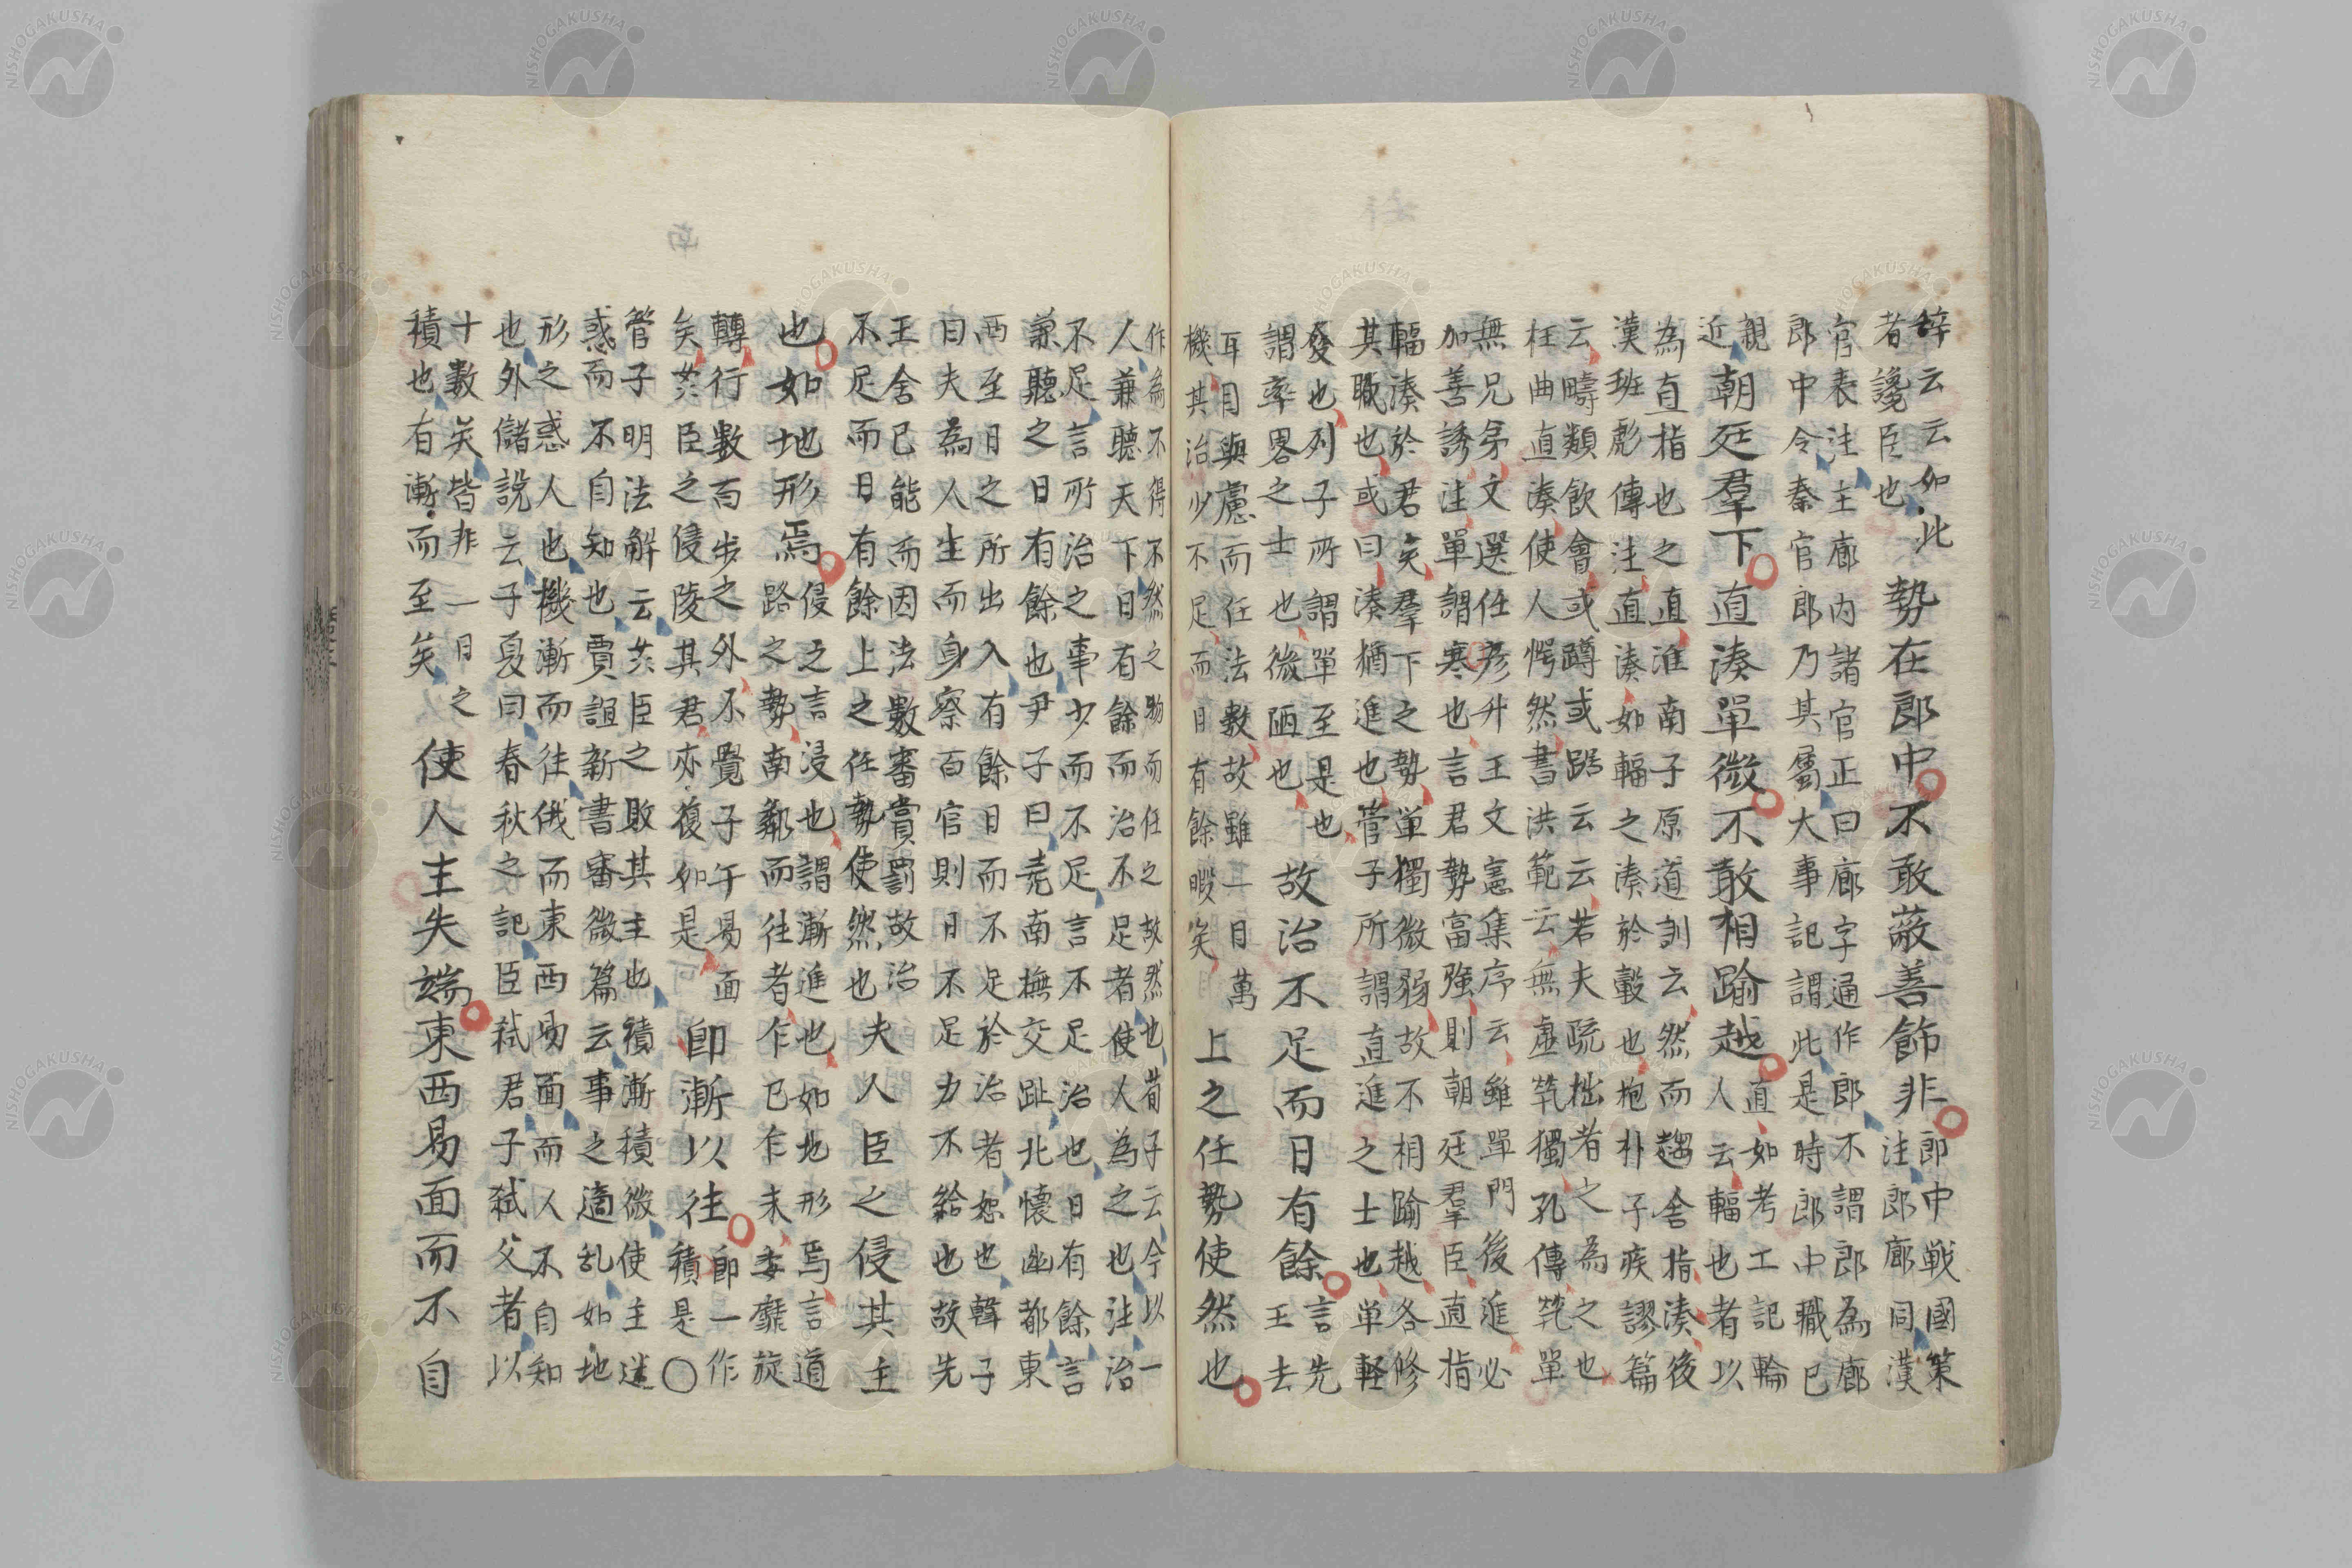 辞云云如此
者讒臣也
勢在郎中不敢蔽善飾非
郎中戦國策
注郎廊同漢
官表注主廊内諸官正曰廊字通作郎不謂郎為廊
郎中令秦官郎乃其屬大事記謂此是時郎中職已
親
近
朝廷羣下直湊單微不敢相踰越
直如考工記輪
人云輻也者以
為直指也之直淮南子原道訓云然而趨舍指湊後
漢班彪傳注直湊如輻之湊於轂也抱朴子疾謬篇
云疇類飲會或蹲或踞云云若夫疏拙者之為之也
枉曲直湊使人愕然書洪範云無虚煢獨孔傳煢單
無兄弟文選任彦升王文憲集序云雖單門後進必
加善誘注單謂寒也言君勢富強則朝廷羣臣直指
輻湊於君矣羣下之勢単獨微弱故不相踰越各修
其職也或曰湊猶進也管子所謂直進之士也単軽
發也列子所謂單至是也
謂率畧之士也微陋也
故治不足而日有餘
言先
王去
耳目與慮而任法數故雖一日萬
機其治少不足而日有餘暇矣
上之任勢使然也
作為不得不然之物而任之故然也荀子云今以一
人兼聽天下日有餘而治不足者使人為之也注治
不足言所治之事少而不足言不足治也日有餘言
兼聽之日有餘也尹子曰堯南撫交趾北懷幽都東
西至日之所出入有餘日而不足於治者恕也韓子
曰夫為人生而身察百官則日不足力不給也故先
王舍已能而因法數審賞罰故治
不足而日有餘上之任勢使然也
夫人臣之侵其主
也如地形焉
侵之言浸也謂漸進也如地形焉言道
路之勢南鄰而往者乍已乍未委靡旋
轉行數百歩之外不覺子午易面
矣羙臣之侵陵其君亦復如是
即漸以往
即一作
積是〇
管子明法解云羙臣之敗其主也積漸積微使主迷
惑而不自知也賈誼新書審微篇云事之適乱如地
形之惑人也機漸而往俄而東西易面而人不自知
也外儲説云子夏曰春秋之記臣弑君子弑父者以
十數矣皆非一日之
積也有漸而至矣
使人主失端東西易面而不自